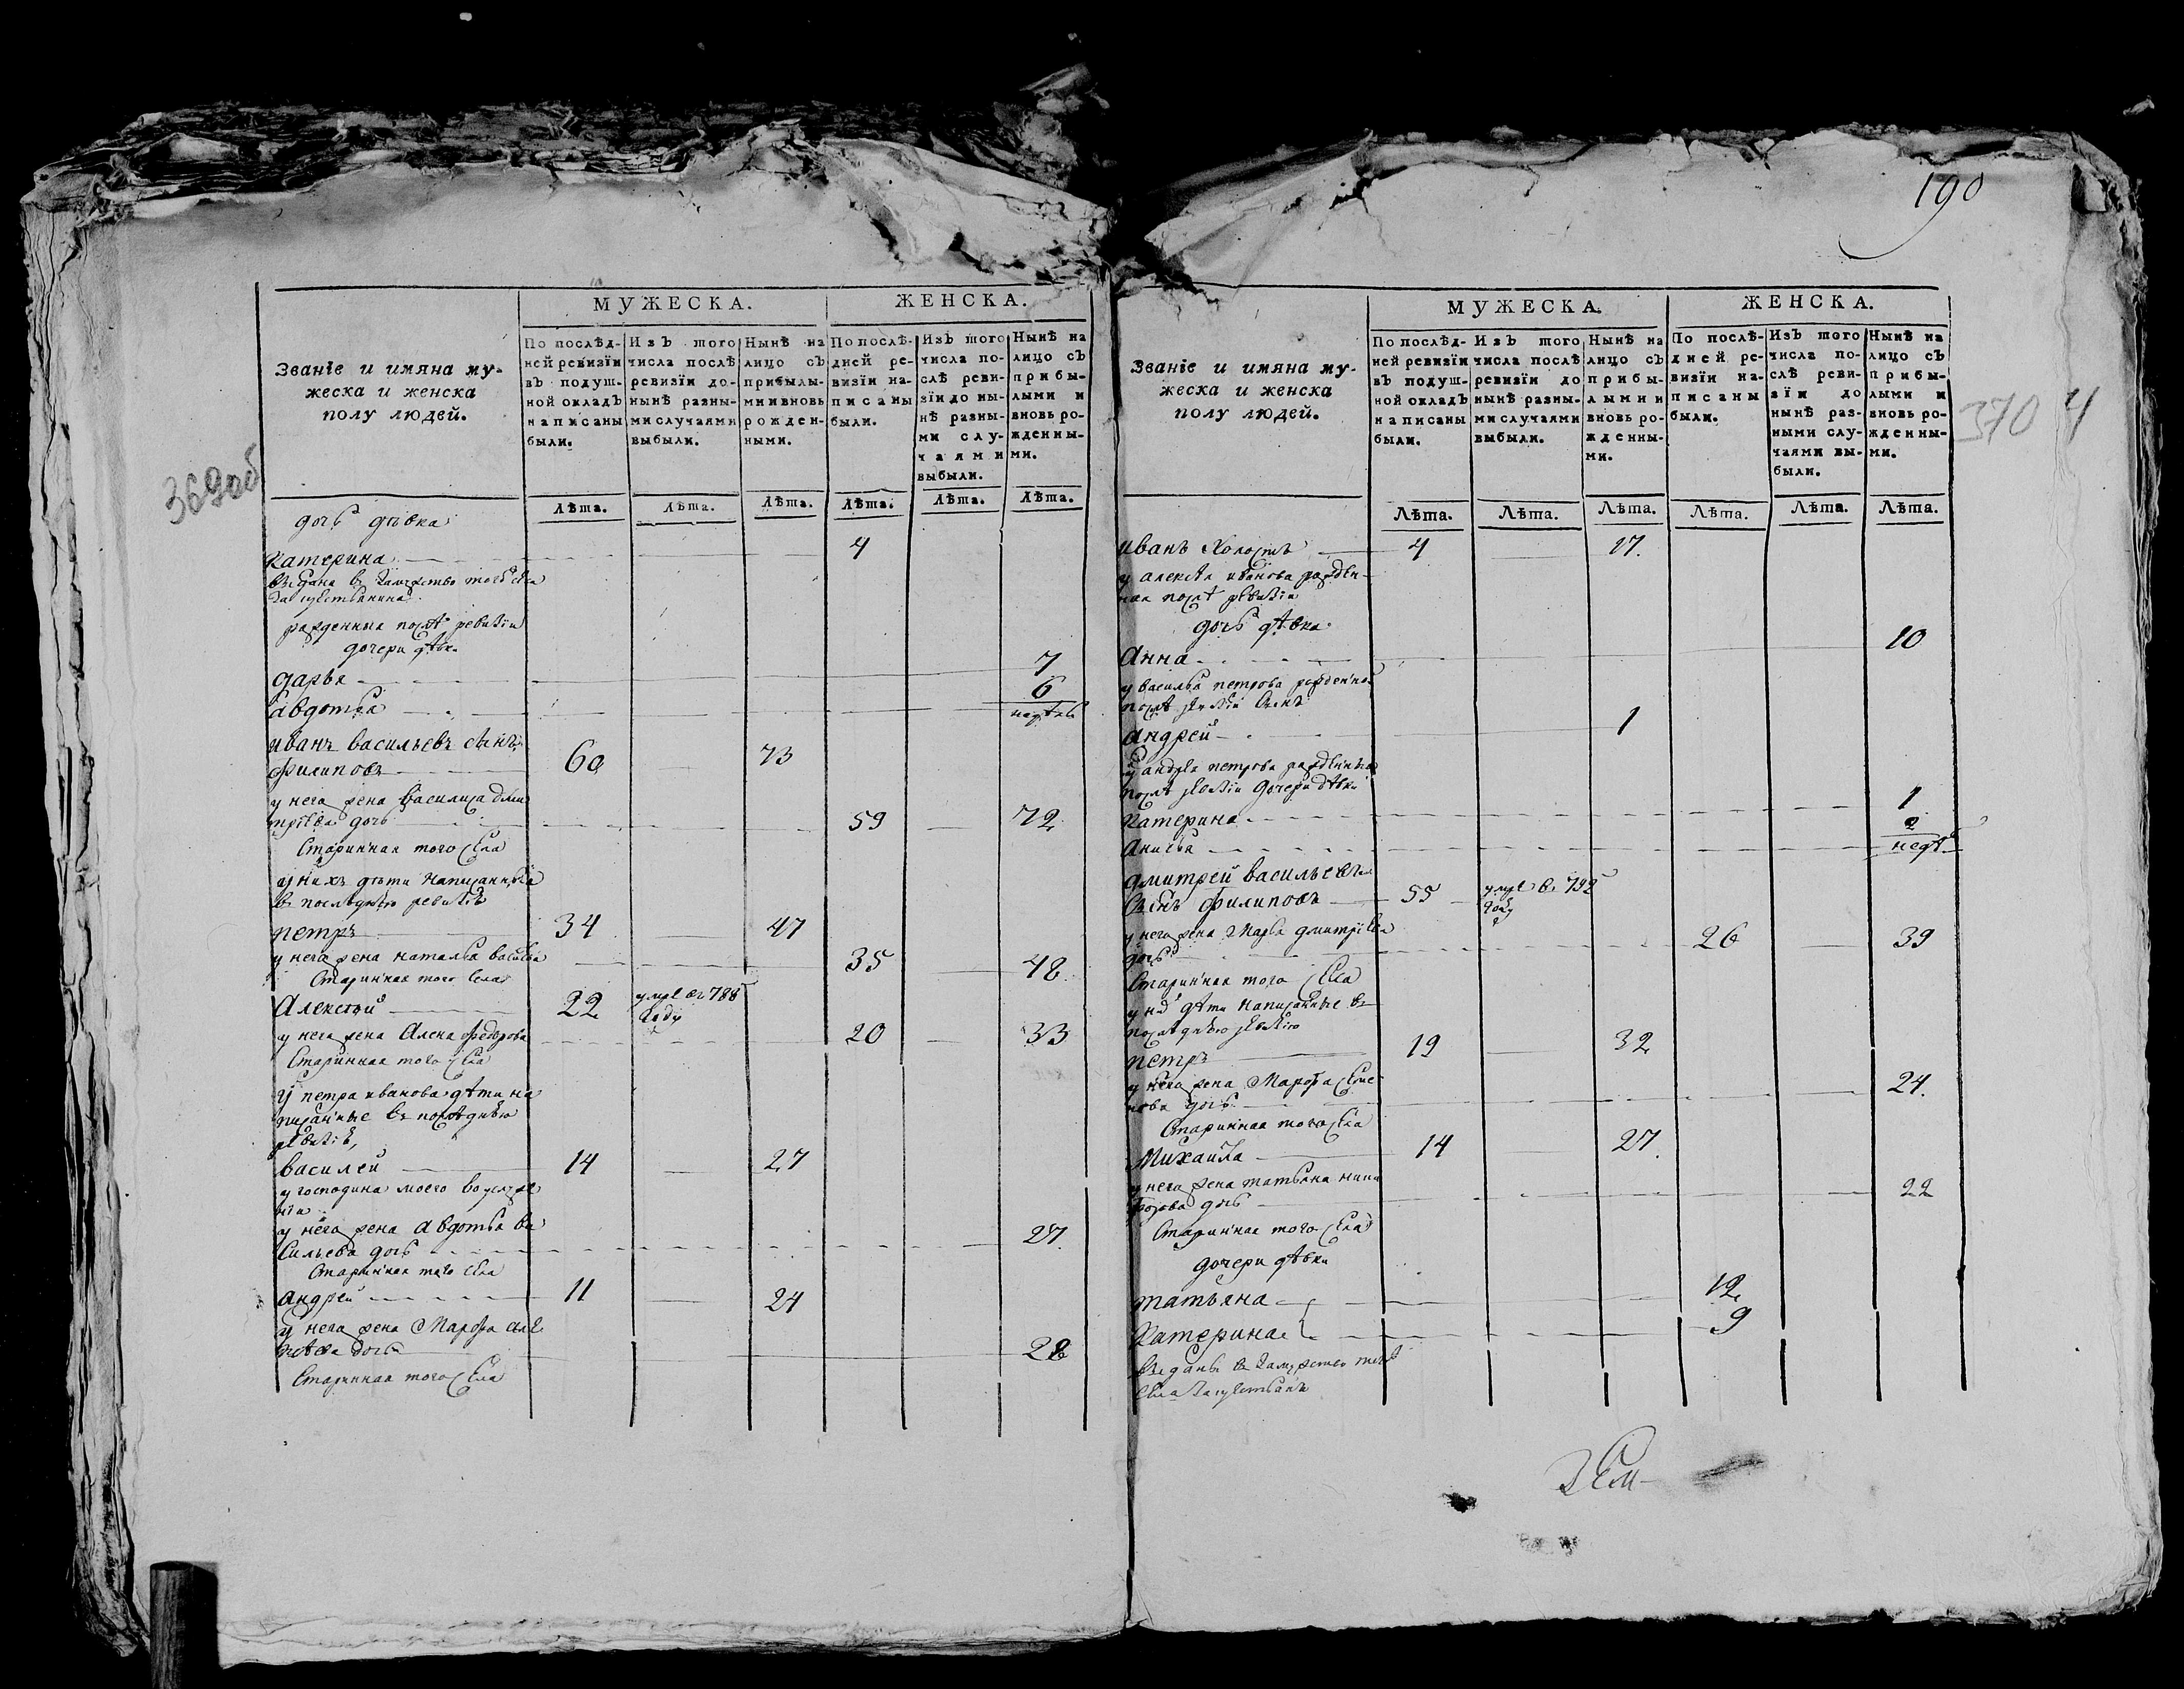 190
369об
370
4
МУЖЕСКА.
ЖЕНСКА.
Званіе и имяна му-
жеска и женска
полу людей.
По послѣд-
ней ревизіи
въ подуш-
ной окладъ
написаны
были.
Изъ того
числа послѣ
ревизіи до-
нынѣ разны-
ми случаями
выбыли.
Нынѣ на
лицо съ
прибылы-
ми и вновь
рожден-
ными.
По послѣ-
дней ре-
визіи на-
писаны
были.
Изъ того
числа по-
слѣ реви-
зіи до ны-
нѣ разны-
ми слу-
чаями
выбыли.
Нынѣ на
лицо съ
прибы-
лыми и
вновь ро-
жденны-
ми.
Лѣта. Лѣта. Лѣта. Лѣта. Лѣта. Лѣта.
дочь девка
Катерина 4
выдана в замужство тогожъ села
за крестьянина
рожденныя послѣ ревизіи
дочери дѣвки
дарья 7
авдотья 6
иванъ васильевъ сынъ
филиповъ 60 73
у него жена василиса дми
тріева дочь 59 72
Старинная того села
у нихъ дѣти написанныя
в последнею ревизію
петръ 34 47
у него жена наталья васильева 35 48
Старинная того села
Алексѣй 22 умре въ 788
году
у него жена Алена федорова 20 33
Старинная того села
у петра иванова дѣти на
писанные въ последнею
ревизію,
василей 14 27
у господина моего в
у него жена авдотья ва
сильева дочь 27
Старинная того села
андрей 11 24
у него жена Марфа але
ксѣева дочь 28
Старинная того села
МУЖЕСКА.
ЖЕНСКА.
Званіе и имяна му-
жеска и женска
полу людей.
По послѣд-
ней ревизіи
въ подуш-
ной окладъ
написаны
были.
Изъ того
числа послѣ
ревизіи до
нынѣ разны-
ми случаями
выбыли.
Нынѣ на
лицо съ
прибы-
лыми и
вновь ро-
жденны-
ми.
По послѣ-
дней ре-
визіи на-
писаны
были.
Изъ того
числа по-
слѣ реви-
зіи до
нынѣ раз-
ными слу-
чаями вы-
были.
Нынѣ на
лицо съ
прибы-
лыми и
вновь ро-
жденны-
ми.
Лѣта. Лѣта. Лѣта. Лѣта. Лѣта. Лѣта.
иванъ холостъ 4 17.
у алексѣя иванова рожден-
ная послѣ ревизіи
дочь дѣвка
Анна 10
у василья петрова рожденной
послѣ ревизіи сынъ
андрей 1
у андрея петрова рожденныя
послѣ ревизіи дочери дѣвки
катерина 1
анисья 2
недѣ
дмитрей васильевъ
сынъ филиповъ 55 умре в 792
году
у него жена Марья дмитріева
дочь 26 39
Старинная того села
у них дѣти написанные в
последнею ревизію
петръ 19 32
у него жена Марфа семе
нова дочь 24.
Старинная того села
Михайла 14 27.
у него жена татьяна ники
форова дочь 22
Старинная того села
дочери дѣвки
татьяна 12
катерина 9
выданы в замужство того
села за крестьянъ